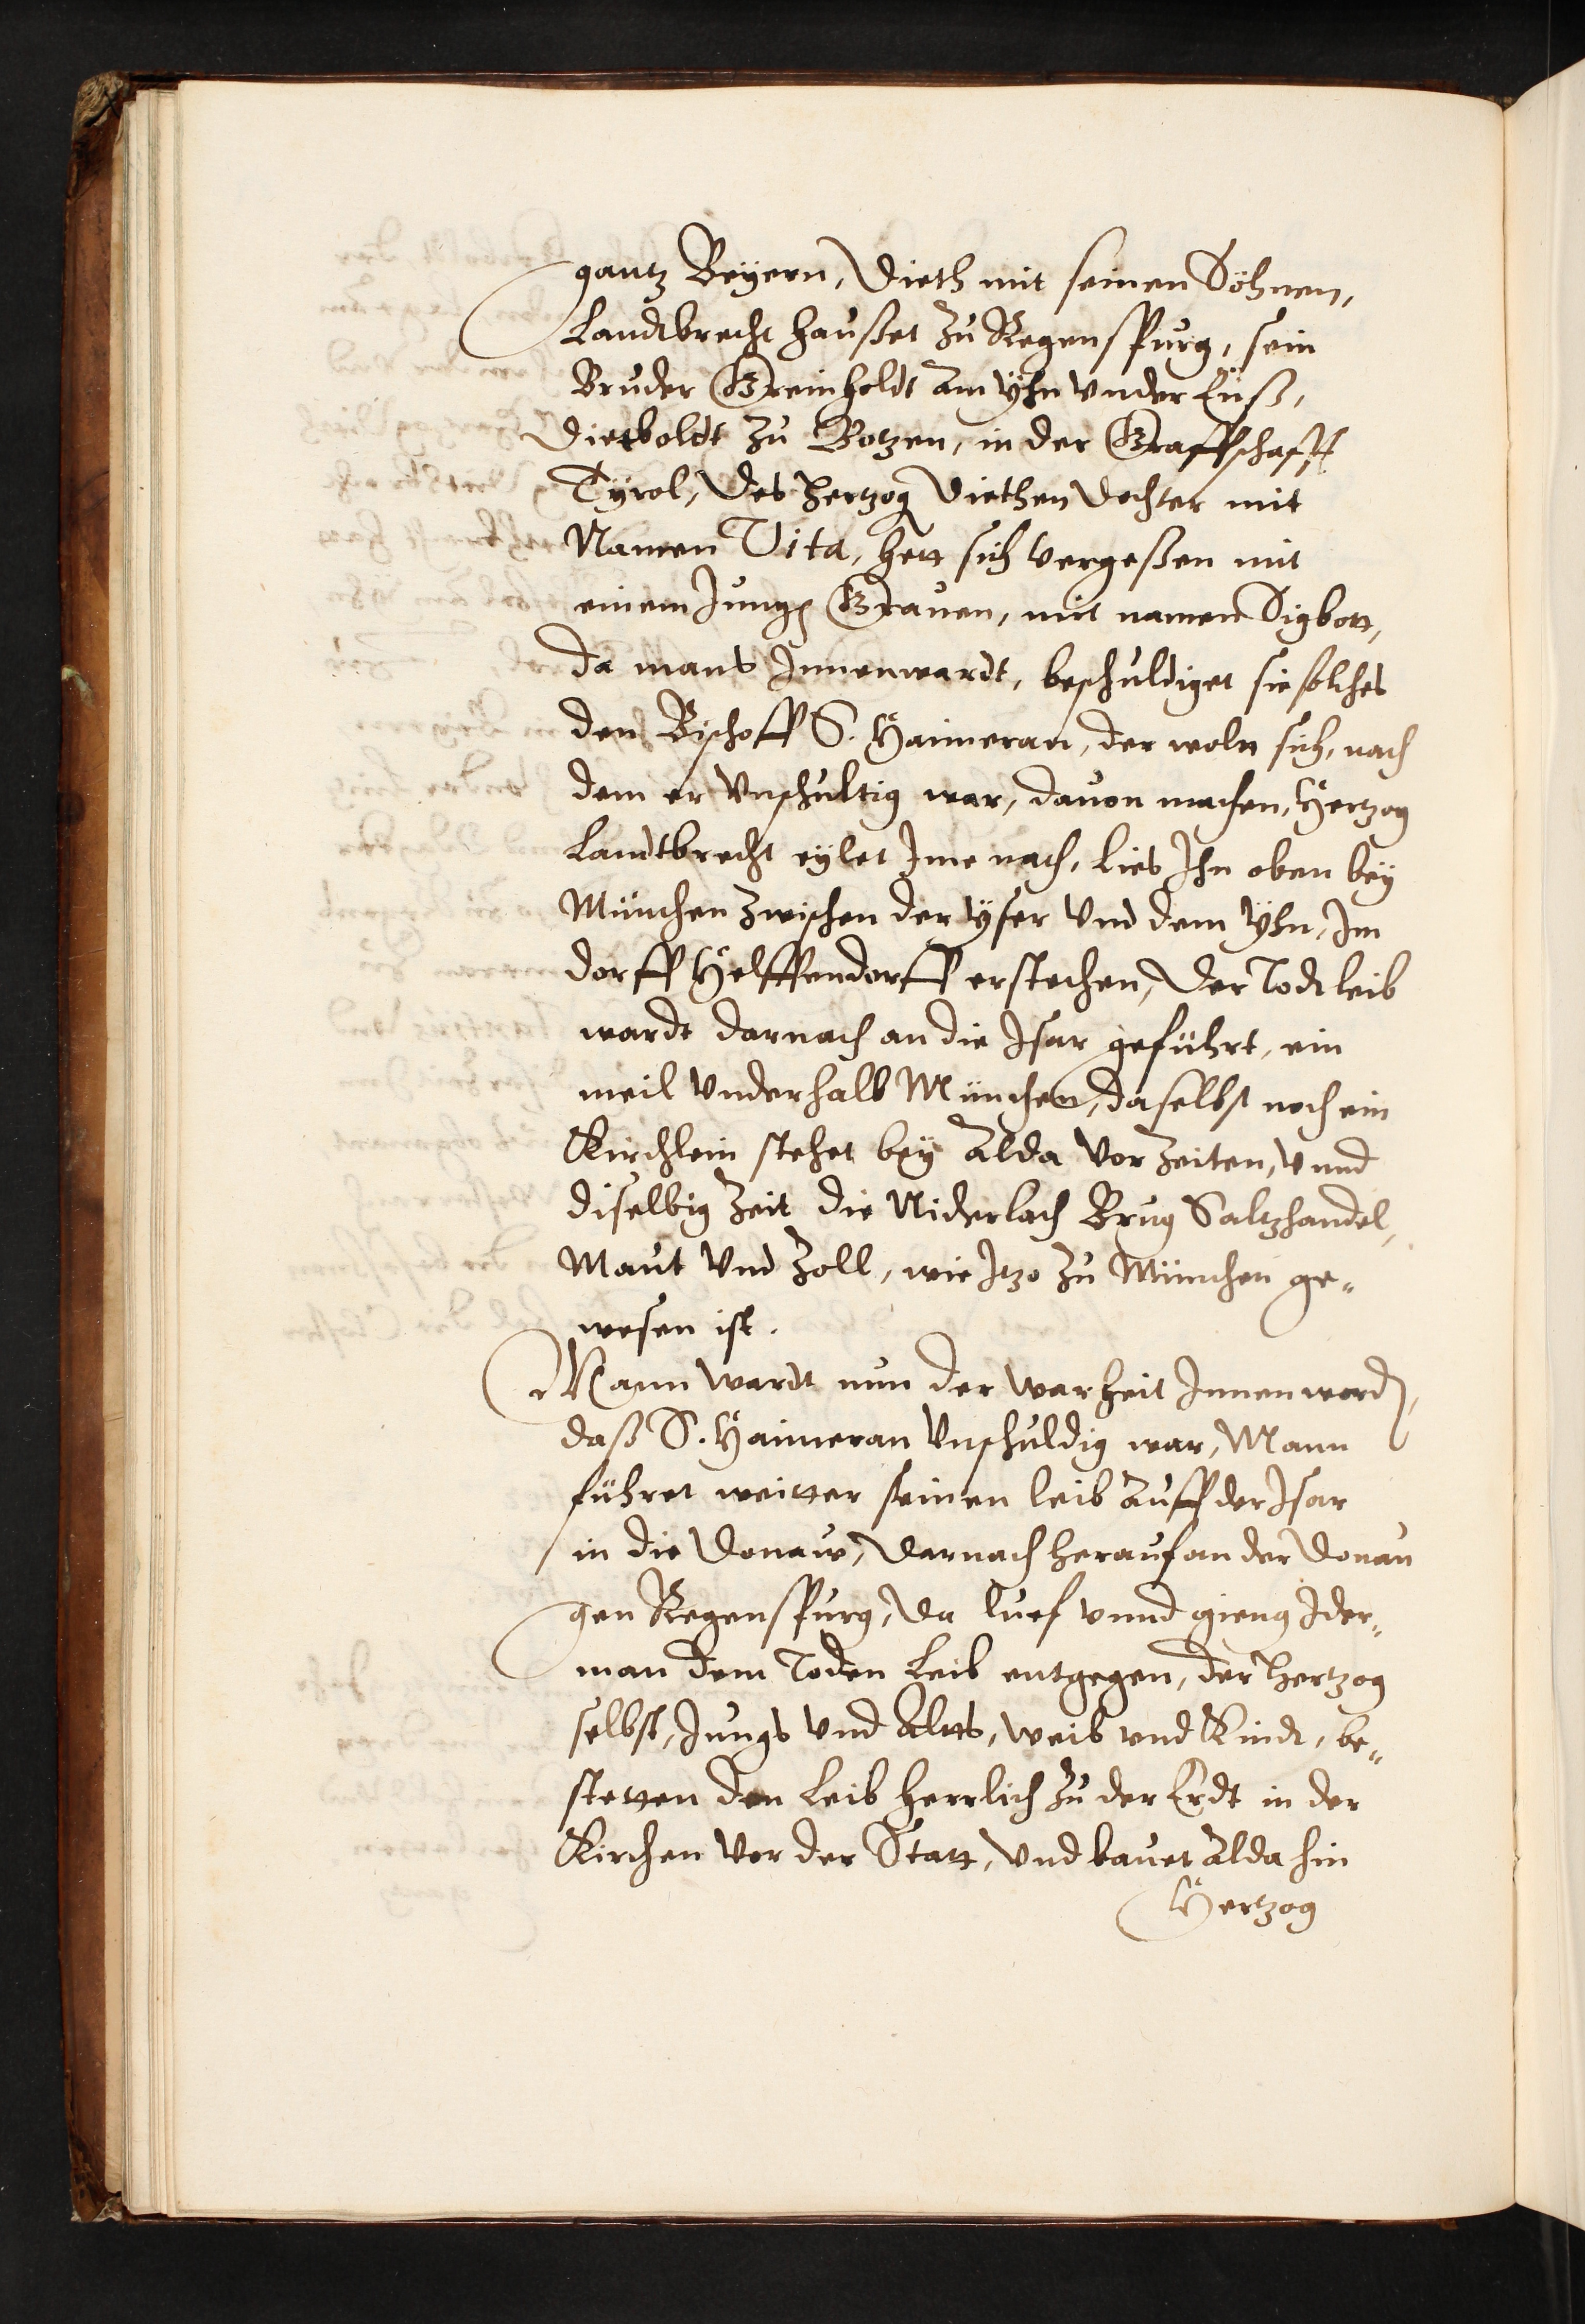 gantz Beÿern, Dieth mit seinen Söhnen,
Landtbrecht haußet zu Regenspurg, sein
Bruder Greinholdt am Ÿhn vnder Enß,
Dietboldt zu Botzen, in der Graffschafft
Tÿrol, Des Hertzog Diethen Dochter mit
Namen Vita, hett sich vergeßen mit
einem Jungen Grauen, mit namen Sigbott,
da mans Innenwardt, beschuldiget sie solches
den Bischoff S. Haimeran, der woln sich, nach
dem er vnschultig war, dauon machen, Hertzog
Landtbrecht eÿlet Ime nach, lies Ihn oben beÿ
München zwischen der Ÿser vnd dem Ÿhn, Im
dorff Helffendorff erstechen, Der Todt leib
wardt darnach an die Isar geführt, ein
meil vnderhalb München, daselbst noch ein
Kirchlein stehet beÿ Alda vor Zeiten, vnnd
diselbig Zeit die Niderlach Brug Saltzhandel,
Maut vnd Zoll, wie Itzo zu München ge„
wesen ist.
Mann wardt nun der warheit Innen worden,
daß S. Haimeran vnschuldig war, Mann
führet weitter seinen leib auff der Isar
in die Donaw, Darnach herauf an der Donau
gen Regenspurg, Da luef vnnd gieng Ider„
man dem Toden Leib entgegen, der Hertzog
selbst, Jungs vnd Altts, weib vnd Kindt, be„
stetten den Leib herrlich zu der Erdt in der
Kirchen vor der Statt, vnd bauet alda hin
Hertzog